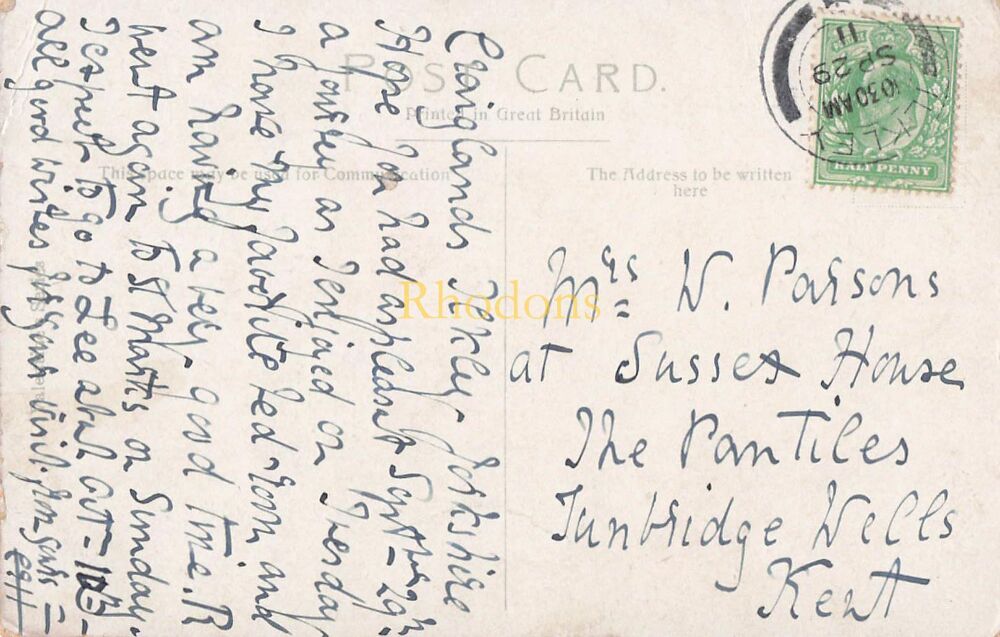 POST CARD.
Printed in Great Britain
This space may be used for Communication
The Address to be written
here
ILKLEY
10 30 AM
SP 29
11
HALF PENNY
Rhodons
Mrs W. Parsons
at Sussex House
The Pantiles
Tunbridge Wells
Kent
Craiglands Ilkley Yorkshire
Hope you had as pleasant Sept 29th
a journey as I enjoyed on Tuesday
I have my favorite bed-room and
am having a very good time. R
went again to St Marks on Sunday.
I expect to go to Lee about Oct
all good wishes